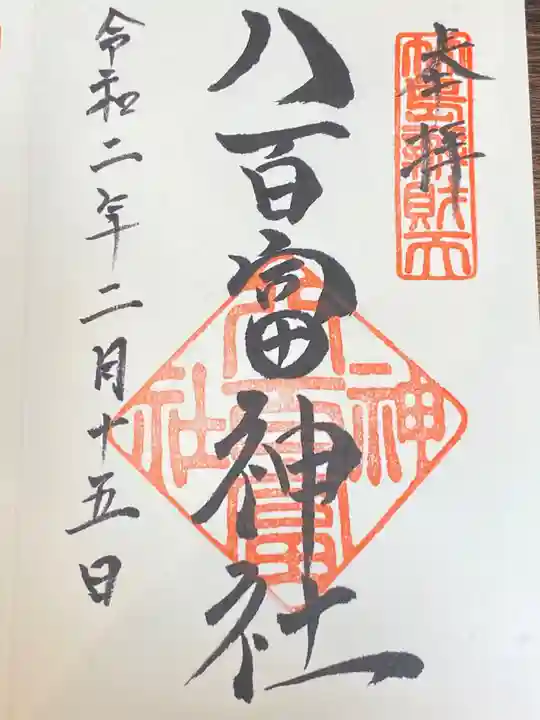 奉拝
竹島辨財天
八百富神社
八百富神社
令和二年二月十五日